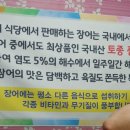 식당에서 판매하는 장어는 국내에서
어 중에서도 최상품인 국내산 토종
염도 5%의 해수에서 일주일간
장어의 맛은 담백하고 육질도 쫀득한
장어에는 평소 다른 음식으로 섭취하기
각종 비타민과 무기질이 풍부합